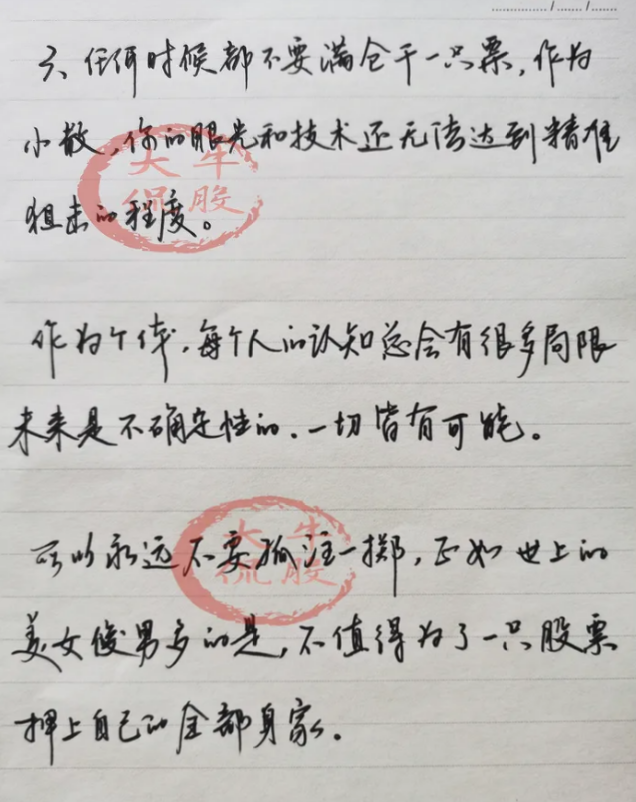 六、任何时候都不要满仓干一只票，作为
小散，你的眼光和技术还无法达到精准
狙击的程度。
作为个体，每个人的认知总会有很多局限
未来是不确定性的．一切皆有可能。
所以永远不要孤注一掷，正如世上的
美女俊男多的是，不值得为了一只股票
押上自己的全部身家。
大牛
侃股
大牛
侃股